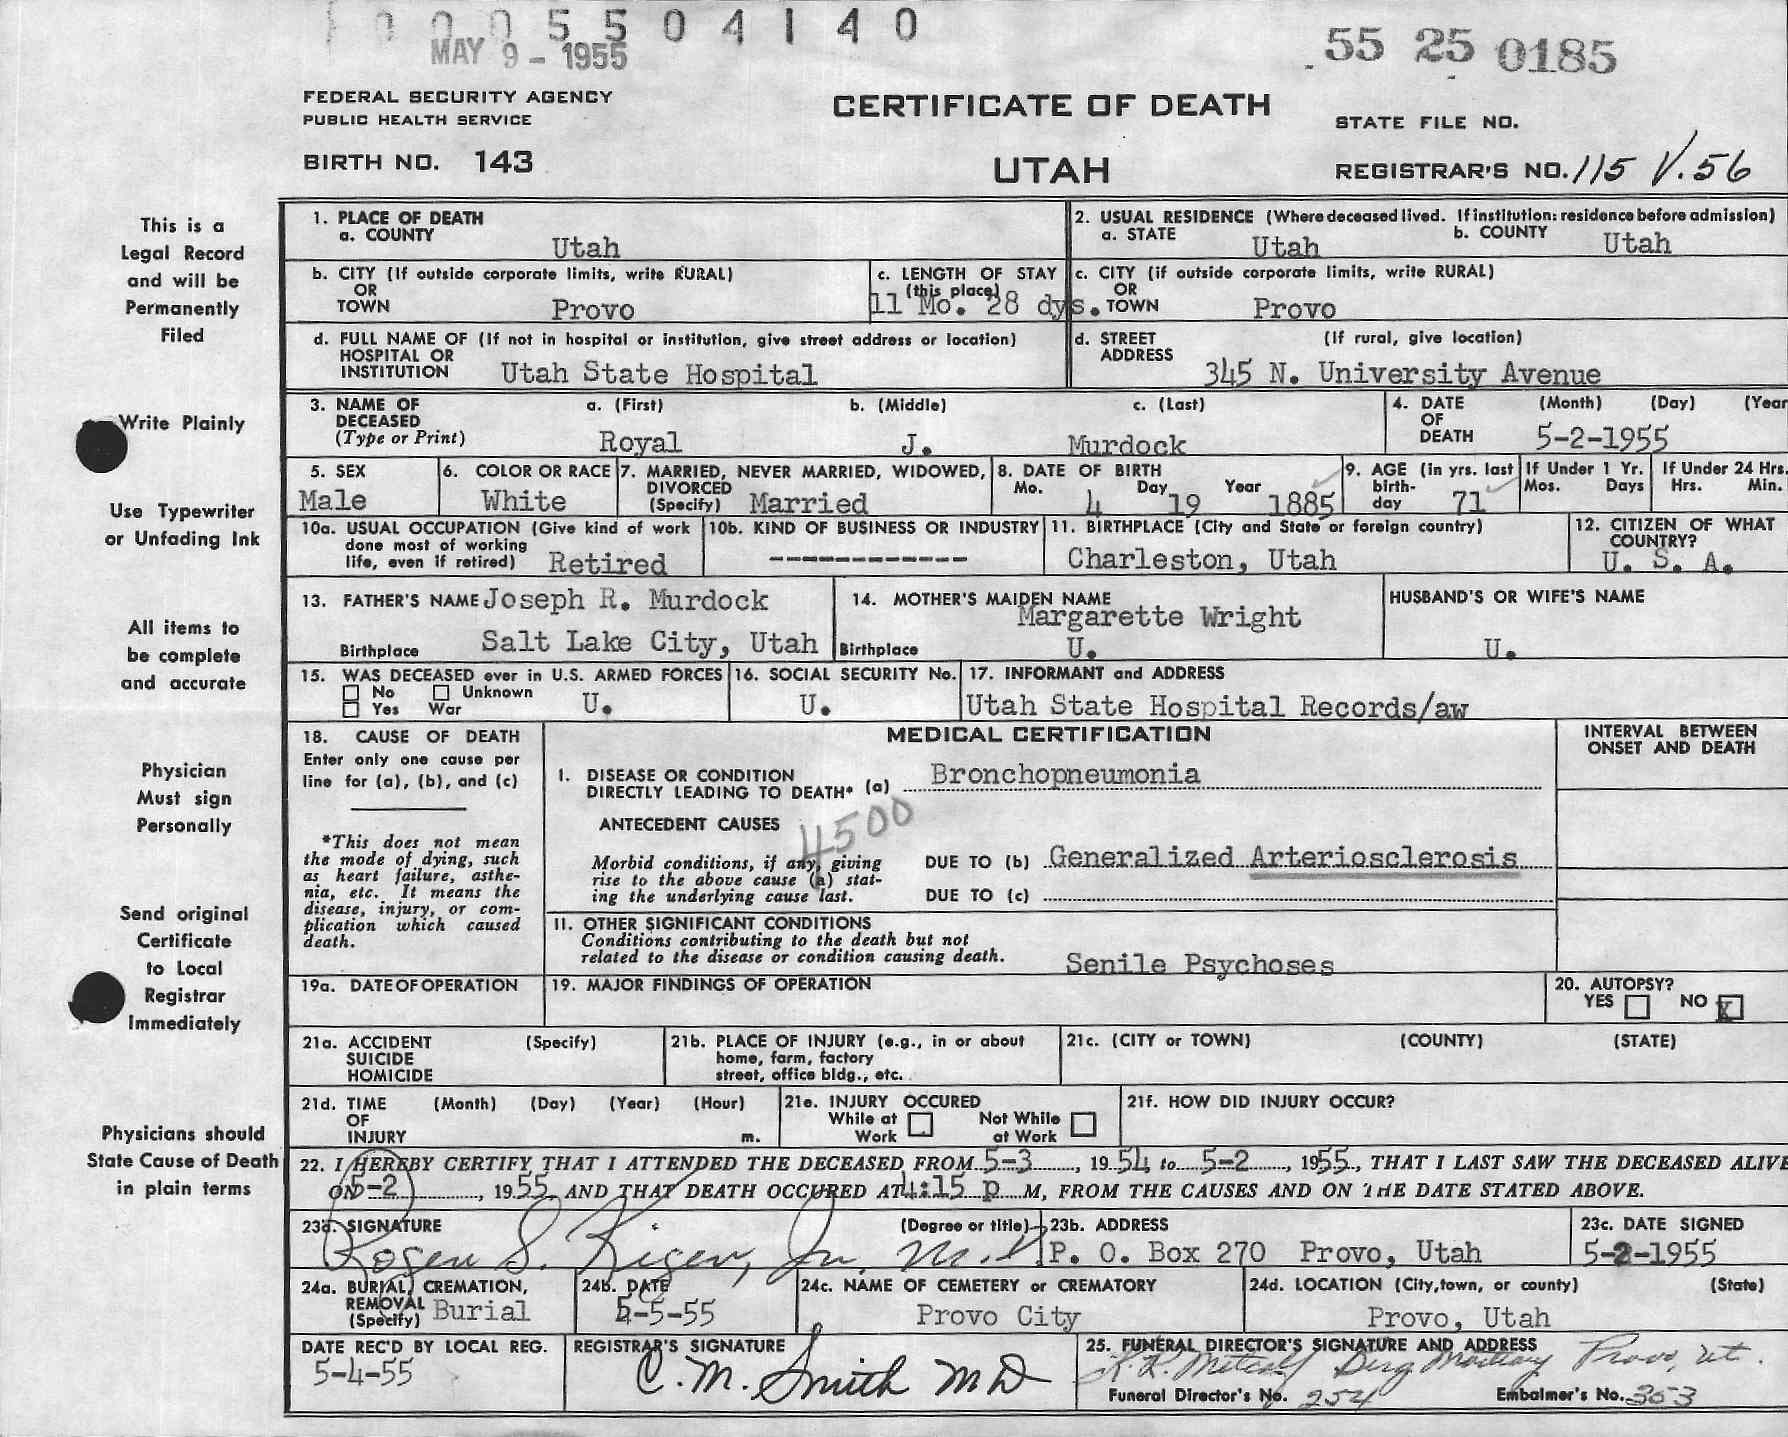 0005504140
MAY 9 - 1955
55 25 0185
FEDERAL SECURITY AGENCY
PUBLIC HEALTH SERVICE
CERTIFICATE OF DEATH
STATE FILE NO.
BIRTH NO. 143
UTAH
REGISTRAR'S NO. 115 V.56
This is a
Legal Record
and will be
Permanently
Filed
Write Plainly
Use Typewriter
or Unfading Ink
All items to
be complete
and accurate
Physician
Must sign
Personally
Send original
Certificate
to Local
Registrar
Immediately
Physicians should
State Cause of Death
in plain terms
1. PLACE OF DEATH
a. COUNTY
Utah
2. USUAL RESIDENCE (Where deceased lived. If institution: residence before admission)
a. STATE Utah b. COUNTY Utah
b. CITY (If outside corporate limits, write RURAL)
OR
TOWN Provo
c. LENGTH OF STAY
(this place)
11 Mo. 28 dys.
c. CITY (if outside corporate limits, write RURAL)
OR
TOWN Provo
d. FULL NAME OF (If not in hospital or institution, give street address or location)
HOSPITAL OR
INSTITUTION Utah State Hospital
d. STREET (If rural, give location)
ADDRESS
345 N. University Avenue
3. NAME OF a. (First) b. (Middle) c. (Last)
DECEASED
(Type or Print) Royal J. Murdock
4. DATE (Month) (Day) (Year
OF
DEATH 5-2-1955
5. SEX
Male
6. COLOR OR RACE
White
7. MARRIED, NEVER MARRIED, WIDOWED,
DIVORCED
(Specify) Married
8. DATE OF BIRTH
Mo. Day Year
4 19 1885
9. AGE (in yrs. last
birth-
day 71
If Under 1 Yr.
Mos. Days
If Under 24 Hrs.
Hrs. Min.
10a. USUAL OCCUPATION (Give kind of work
done most of working
life, even if retired) Retired
10b. KIND OF BUSINESS OR INDUSTRY
------------
11. BIRTHPLACE (City and State or foreign country)
Charleston, Utah
12. CITIZEN OF WHAT
COUNTRY?
U. S. A.
13. FATHER'S NAME Joseph R. Murdock
Birthplace Salt Lake City, Utah
14. MOTHER'S MAIDEN NAME
Margarette Wright
Birthplace U.
HUSBAND'S OR WIFE'S NAME
U.
15. WAS DECEASED ever in U.S. ARMED FORCES
No Unknown
Yes War U.
16. SOCIAL SECURITY No.
U.
17. INFORMANT and ADDRESS
Utah State Hospital Records/aw
18. CAUSE OF DEATH
Enter only one cause per
line for (a), (b), and (c)
*This does not mean
the mode of dying, such
as heart failure, asthe-
nia, etc. It means the
disease, injury, or com-
plication which caused
death.
MEDICAL CERTIFICATION
INTERVAL BETWEEN
ONSET AND DEATH
I. DISEASE OR CONDITION
DIRECTLY LEADING TO DEATH* (a) Bronchopneumonia
ANTECEDENT CAUSES
4500
Morbid conditions, if any, giving
rise to the above cause (a) stat-
ing the underlying cause last.
DUE TO (b) Generalized Arteriosclerosis
DUE TO (c)
II. OTHER SIGNIFICANT CONDITIONS
Conditions contributing to the death but not
related to the disease or condition causing death.
Senile Psychoses
19a. DATE OF OPERATION
19. MAJOR FINDINGS OF OPERATION
20. AUTOPSY?
YES NO X
21a. ACCIDENT (Specify)
SUICIDE
HOMICIDE
21b. PLACE OF INJURY (e.g., in or about
home, farm, factory
street, office bldg., etc.
21c. (CITY or TOWN) (COUNTY) (STATE)
21d. TIME (Month) (Day) (Year) (Hour)
OF
INJURY m.
21e. INJURY OCCURED
While at Not While
Work at Work
21f. HOW DID INJURY OCCUR?
22. I HEREBY CERTIFY THAT I ATTENDED THE DECEASED FROM 5-3, 1954 to 5-2, 1955, THAT I LAST SAW THE DECEASED ALIVE
ON 5-2, 1955 AND THAT DEATH OCCURED AT 4:15 p M, FROM THE CAUSES AND ON THE DATE STATED ABOVE.
23a. SIGNATURE (Degree or title)
Rogen S. Kiger, Jr. M.D.
23b. ADDRESS
P. O. Box 270 Provo, Utah
23c. DATE SIGNED
5-2-1955
24a. BURIAL, CREMATION,
REMOVAL
(Specify) Burial
24b. DATE
5-5-55
24c. NAME OF CEMETERY or CREMATORY
Provo City
24d. LOCATION (City, town, or county) (State)
Provo, Utah
DATE REC'D BY LOCAL REG.
5-4-55
REGISTRAR'S SIGNATURE
C. M. Smith MD
25. FUNERAL DIRECTOR'S SIGNATURE AND ADDRESS
Metcalf Berg Mortuary Provo, Ut.
Funeral Director's No. 254 Embalmer's No. 353